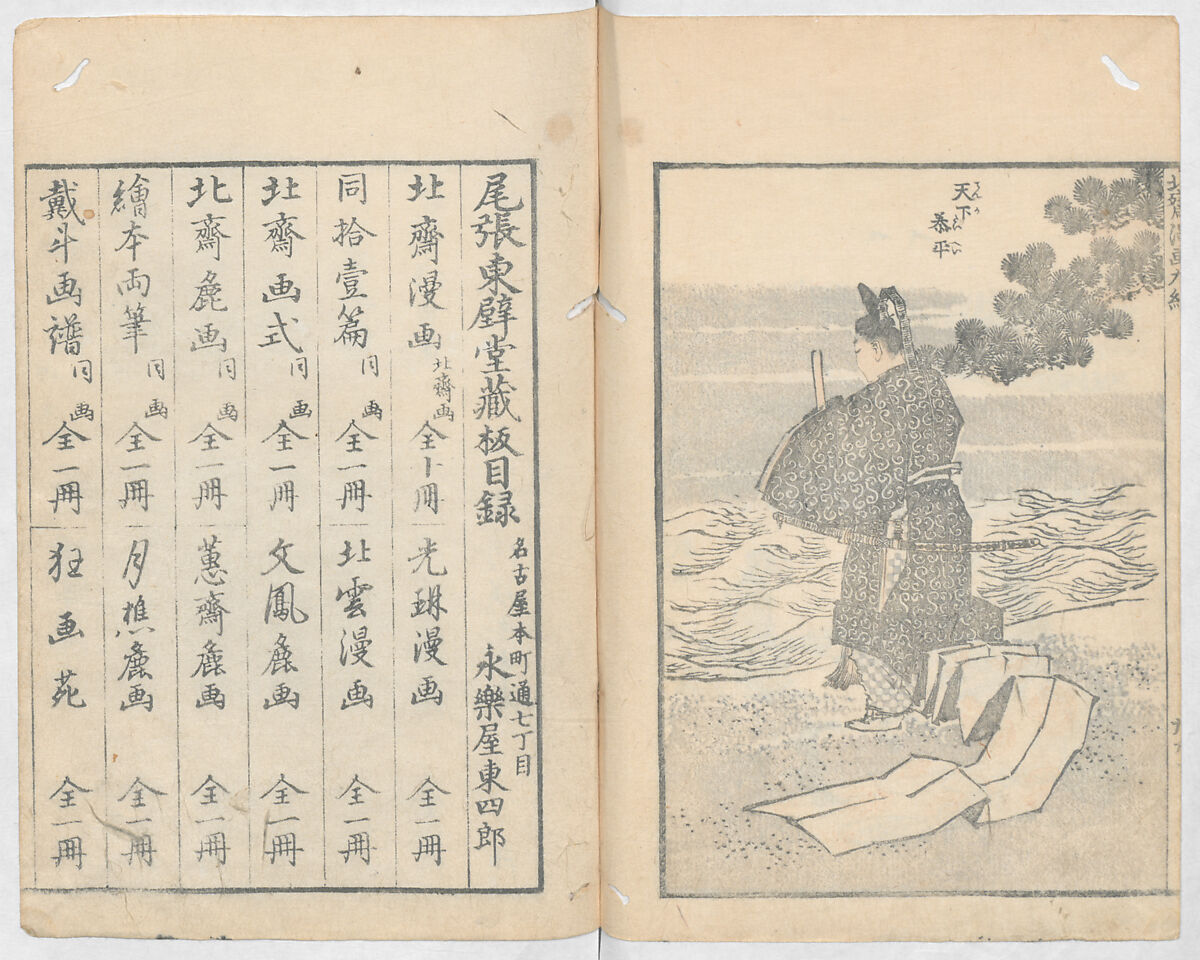 天下
泰平
尾張東壁堂藏板目録
名古屋本町通七丁目
永樂屋東四郎
北齋漫画 北齋画 全十冊 光琳漫画 全一冊
同拾壹篇 同画 全一冊 北雲漫画 全一冊
北齋画式 同画 全一冊 文鳳麁画 全一冊
北齋麁画 同画 全一冊 蕙齋麁画 全一冊
繪本両筆 同画 全一冊 月樵麁画 全一冊
戴斗画譜 同画 全一冊 狂画苑 全一冊